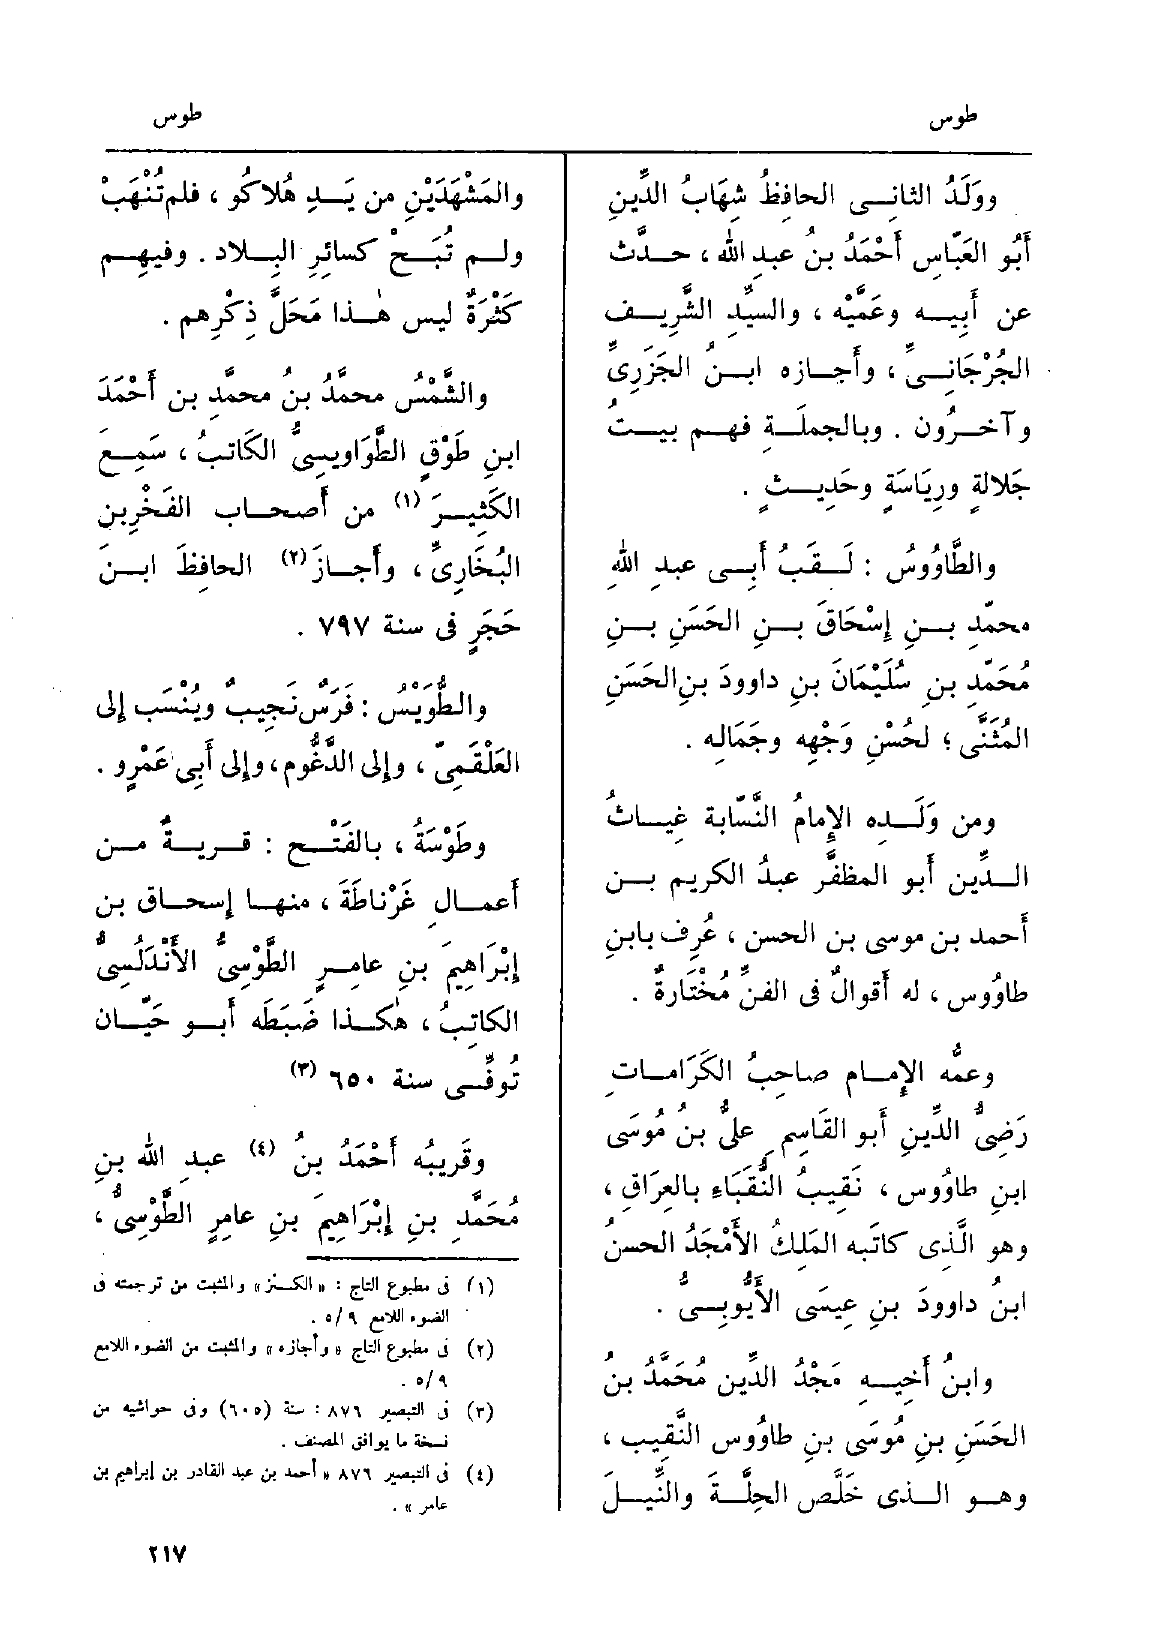 طوس
طوس
ووَلَدُ الثانــى الحافظُ شِهَابُ الدِّينِ
أَبُو العَبّاسِ أَحْمَدُ بنُ عبدِ الله ، حــدّث
عن أَبِيــه وعَمَّيْه ، والسيِّدِ الشَّرِيــف
الجُرْجَانــىِّ ، وأَجــازه ابــنُ الجَزَرِىِّ
وآخــرُون . وبالجملَــةِ فهــم بيــتُ
جَلالةٍ ورِيَاسَةٍ وحَدِيــثٍ .
والطَّاوُوسُ : لَــقَبُ أَبِــى عبدِ اللهِ
محمّدِ بــنِ إِسْحَاقَ بــنِ الحَسَنِ بــنِ
مُحَمّدِ بنِ سُلَيْمَانَ بنِ داوودَ بنِ الحَسَنِ
المُثَنَّى ؛ لحُسْنِ وَجْهِه وجَمَالِه .
ومن وَلَــدِه الإِمامُ النَّسّابة غِيــاثُ
الــدِّين أَبو المظفَّر عبدُ الكريم بــن
أَحمد بن موسى بن الحسن ، عُرِف بابنِ
طاوُوس ، له أَقوالٌ فى الفنِّ مُخْتَارةٌ .
وعمُّه الإِمــام صاحبُ الكَرَامــاتِ
رَضِىُّ الدِّينِ أَبو القَاسِمِ علىُّ بنُ مُوسَى
ابنِ طاوُوس ، نَقِيبُ النُّقَبَاءِ بالعِرَاقِ ،
وهو الَّذِى كاتَبه المَلِكُ الأَمْجَدُ الحسنُ
ابنُ داوودَ بنِ عِيسَى الأَيُّوبــىُّ .
وابنُ أَخِيــه مَجْدُ الدِّين مُحَمَّدُ بنُ
الحَسَنِ بنِ مُوسَى بنِ طاوُوس النَّقِيب ،
وهــو الــذى خَلَّص الحِلَّــةَ والنِّيــلَ
والمَشْهَدَيْنِ من يَــدِ هُلاكُو ، فلم تُنْهَبْ
ولــم تُبَــحْ كسائِرِ البِــلاد . وفيهــم
كَثْرَةٌ ليس هٰــذا مَحَلَّ ذِكْرِهم .
والشَّمْسُ محمدُ بنُ محمدِ بن أَحْمَدَ
ابنِ طَوْقٍ الطَّوَاوِيسِىُّ الكَاتبُ ، سَمِــعَ
الكَثِيــرَ (١) من أَصحــاب الفَخْرِ بن
البُخَارِىِّ ، وأَجــازَ (٢) الحافظَ ابــنَ
حَجَرٍ فى سنة ٧٩٧ .
والطُّوَيْسُ : فَرَسٌ نَجِيبٌ ويُنْسَب إلى
العَلْقَمِىّ ، وإلى الدُّغُّوم ، وإلى أَبِى عَمْرٍو .
وطَوْسَةُ ، بالفَتْــح : قــريــةٌ مــن
أَعمــالِ غَرْناطَةَ ، منهــا إسحــاق بن
إِبْرَاهِيمَ بنِ عامــرٍ الطَّوْسِىُّ الأَنْدَلُسِىُّ
الكاتِبُ ، هٰكــذا ضَبَطَه أَبــو حَيّــان
تُوفِّــى سنة ٦٥٠ (٣)
وقَرِيبُه أَحْمَدُ بنُ (٤) عبدِ الله بنِ
مُحَمَّدِ بنِ إِبْرَاهِيمَ بنِ عامرٍ الطَّوْسِىُّ ،
(١) فى مطبوع التاج : «الكــنز» والمثبت من ترجمته فى
الضوء اللامع ٥/٩ .
(٢) فى مطبوع التاج «وأجازه» والمثبت من الضوء اللامع
٥/٩ .
(٣) فى التبصير ٨٧٦ : سنة (٦٠٥) وفى حواشيه من
نسخة ما يوافق المصنف .
(٤) فى التبصير ٨٧٦ «أحمد بن عبد القادر بن إبراهيم بن
عامر» .
٢١٧